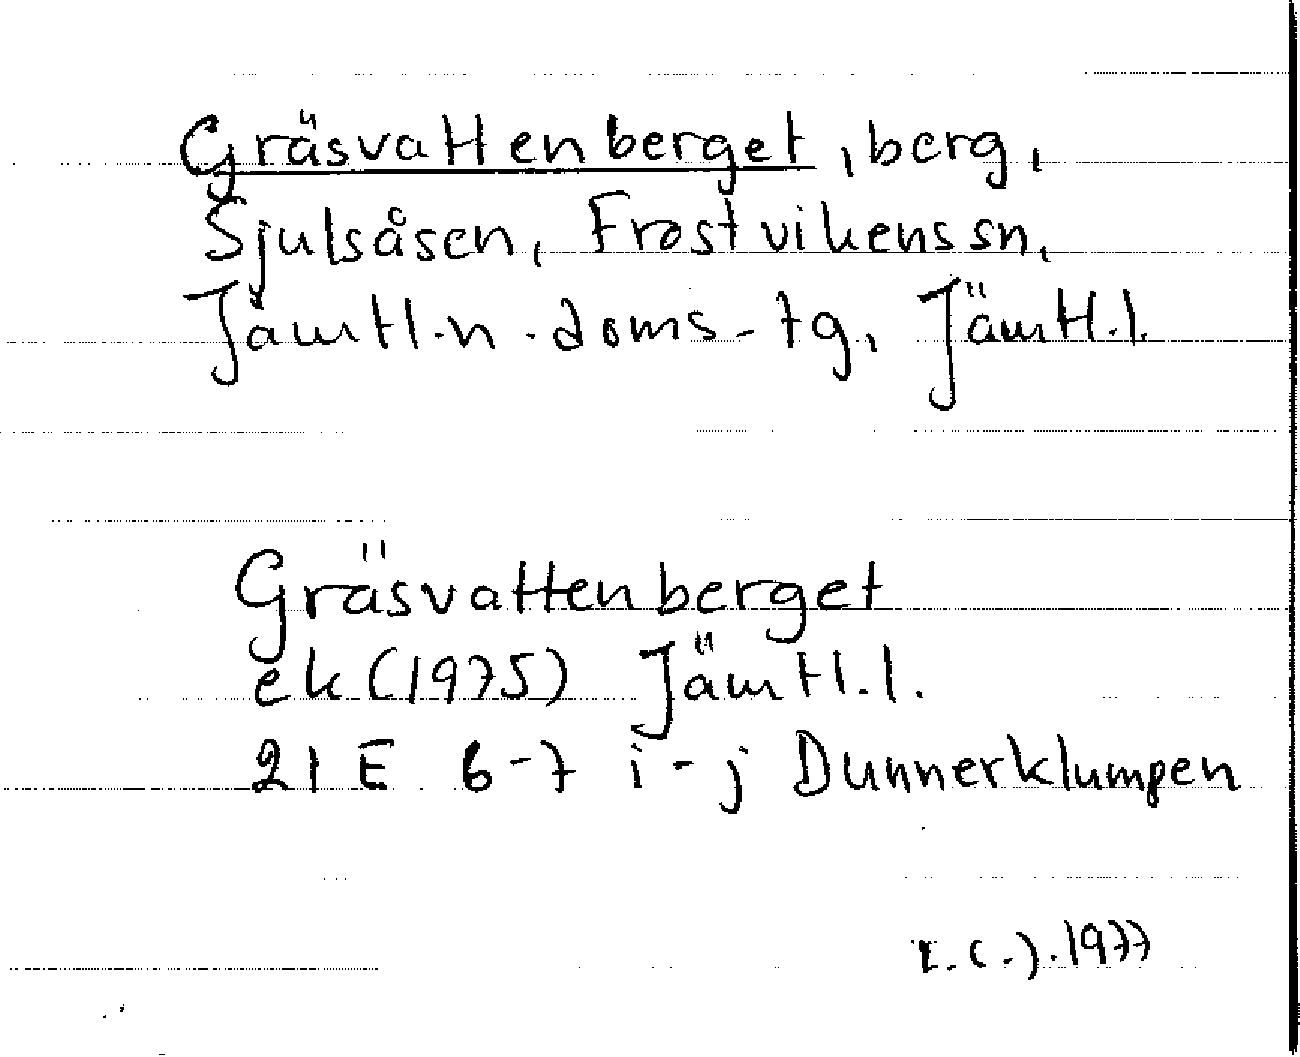 Gräsvattenberget, berg,
Sjulsåsen, Frostvikens sn,
Jämtl.n. doms-tg, Jämtl.l.
Gräsvattenberget
ek (1975) Jämtl.l.
21 E 6-7 i-j Dunnerklumpen
1977